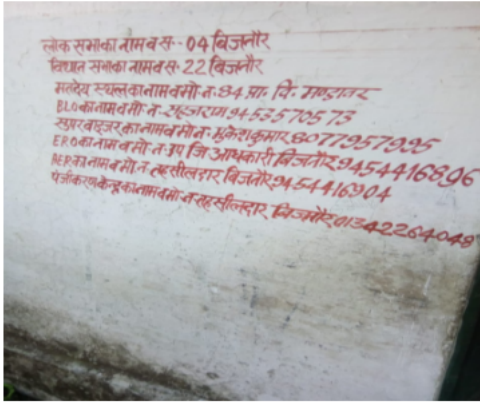 लोक सभा का नाम व स·-04 बिजनौर
विधान सभा का नाम व स· 22 बिजनौर
मतदेय स्थल का नाम व मो·न· 84 प्रा· वि· मण्डावर
BLO का नाम व मो·न· 9453570573
सुपरवाइजर का नाम व मो·न· मुकेश कुमार 8077957995
ERO का नाम व मो·न· उप जि अधिकारी बिजनौर 9454416896
AER का नाम व मो·न· तहसीलदार बिजनौर 9454416904
पंजीकरण केन्द्र का नाम व मो·न· तहसीलदार बिजनौर 01342264048